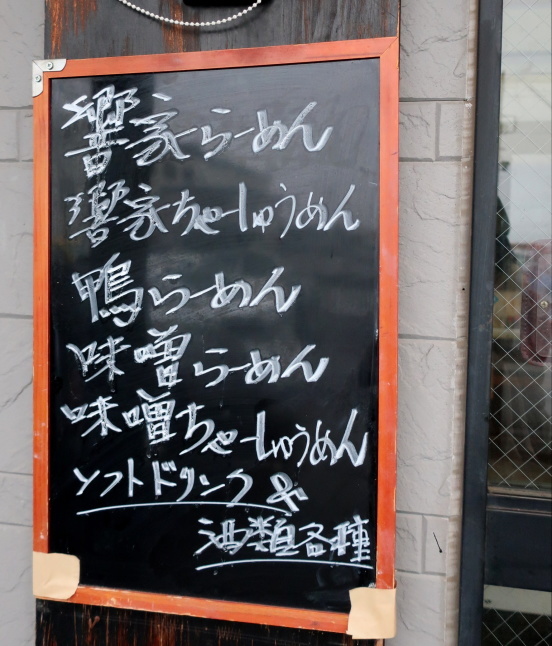 響家らーめん
響家ちゃーしゅうめん
鴨らーめん
味噌らーめん
味噌ちゃーしゅうめん
ソフトドリンク &
酒類各種